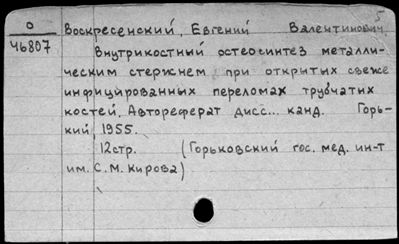 5
О Воскресенский, Евгений Валентинович.
46807
Внутрикостный остеосинтез металли-
ческим стержнем при открытых свеже
инфицированных переломах трубчатых
костей. Автореферат дисс... канд. Горь-
кий, 1955.
12стр. (Горьковский гос. мед. ин-т
им. С. М. Кирова)